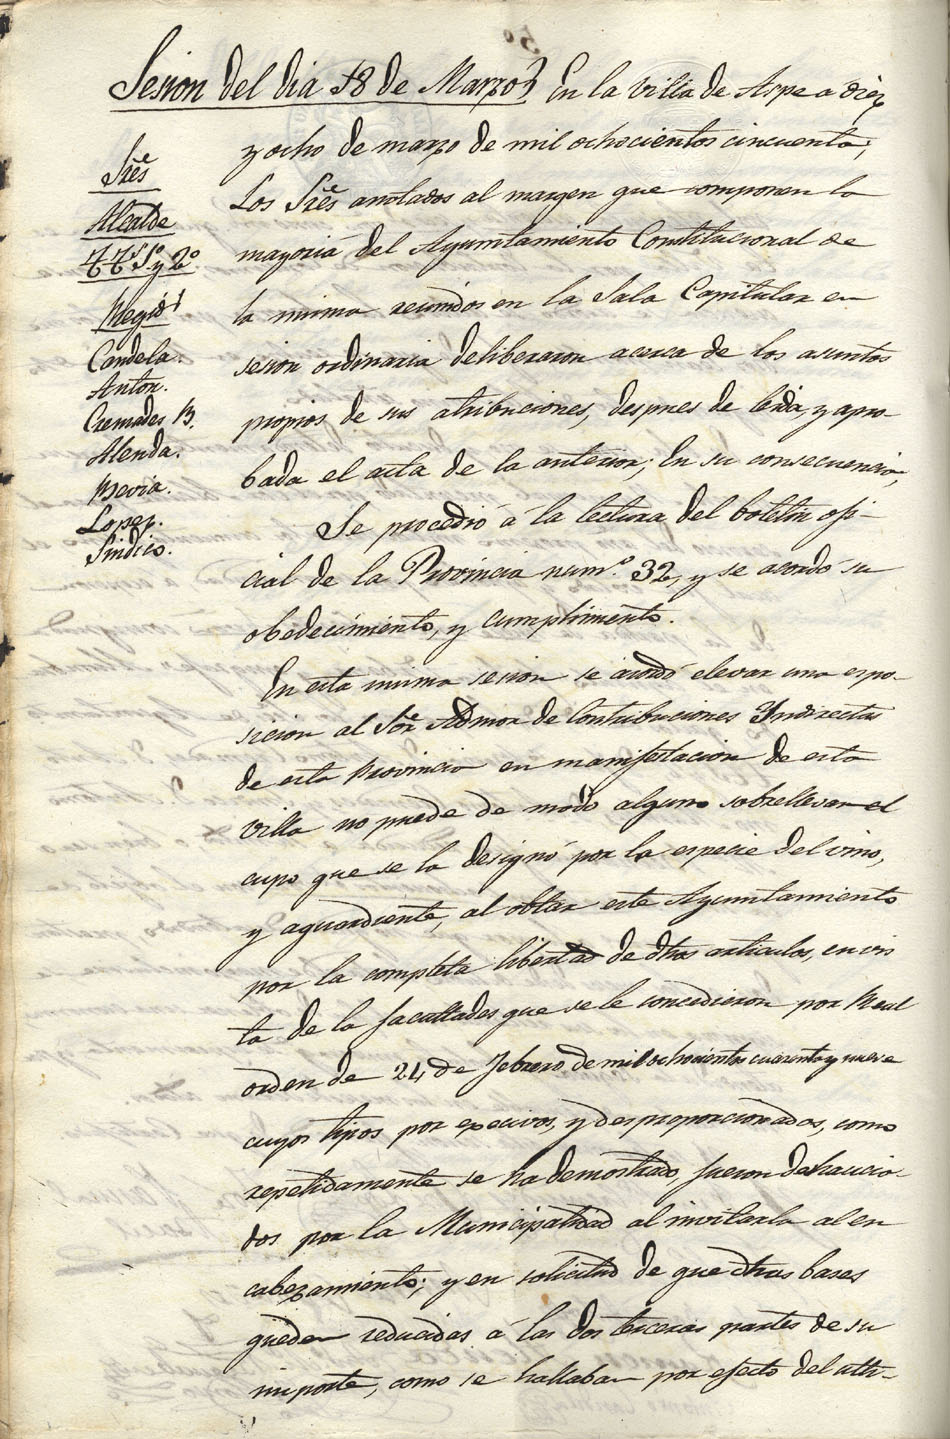 Sesion del dia 18 de Marzo} En la villa de Aspe a diez
y ocho de marzo de mil ochocientos cincuenta;
Los Sres anotados al margen que componen la
mayoria del Ayuntamiento Constitucional de
la misma reunidos en la Sala Capitular en
sesion ordinaria deliberaron acerca de los asuntos
propios de sus atribuciones, despues de leida, y apro
bada el acta de la anterior; En su consecuencia,
Se procedió á la lectura del boletin ofi-
cial de la Provincia num.º 32, y se acordó su
obedecimiento, y cumplimiento.
En esta misma sesion se acordó elevar una espo-
sicion al Sor Admor de Contribuciones Yndirectas
de esta Provincia en manifestacion de esta
villa no puede de modo alguno sobrellevar el
cupo que se la designó por la especie del vino,
y aguardiente, al obtar este Ayuntamiento
por la completa libertad de dhos articulos, en vis
ta de la facultades que se le concedieron por Real
orden de 24 de febrero de mil ochocientos cuarenta y nueve
cuyos tipos por excecivos, y desproporcionados, como
repetidamente se ha demostrado, fueron deshaucia-
dos por la Municipalidad al invitarla al en
cabezamiento; y en solicitud de que dhas bases
queden reducidas á las dos terceras partes de su
importe, como se hallaban por efecto del ulti-
Sres
Alcalde
TTes 1º y 2º
Regid.s
Candela.
Anton.
Cremades B.
Alenda.
Mevia.
Lopez.
Sindico.